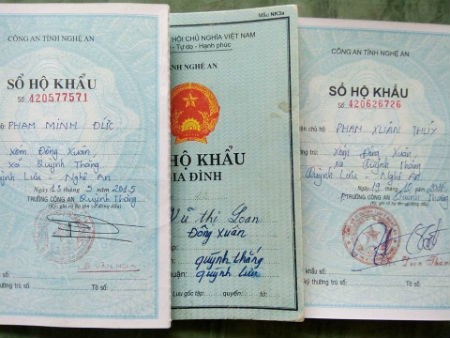 CÔNG AN TỈNH NGHỆ AN
SỔ HỘ KHẨU
SỐ: 420577571
PHẠM MINH ĐỨC
Xóm Đồng Xuân
Xã Quỳnh Thắng
Quỳnh Lưu - Nghệ An
TRƯỞNG CÔNG AN Quỳnh Thắng
Tờ số:
Mẫu NK3a
HỘI CHỦ NGHĨA VIỆT NAM
- Tự do - Hạnh phúc
NGHỆ AN
HỘ KHẨU
GIA ĐÌNH
Vũ Thị Loan
Đồng Xuân
quỳnh thắng
quỳnh lưu
Lưu gốc tập: quyển:
CÔNG AN TỈNH NGHỆ AN
SỔ HỘ KHẨU
SỐ: 420626726
PHẠM XUÂN THỦY
Xóm Đồng Xuân
xã Quỳnh Thắng
Quỳnh Lưu - Nghệ An
TRƯỞNG CÔNG AN Quỳnh Thắng
khẩu số:
ký thường trú số: Tờ số: